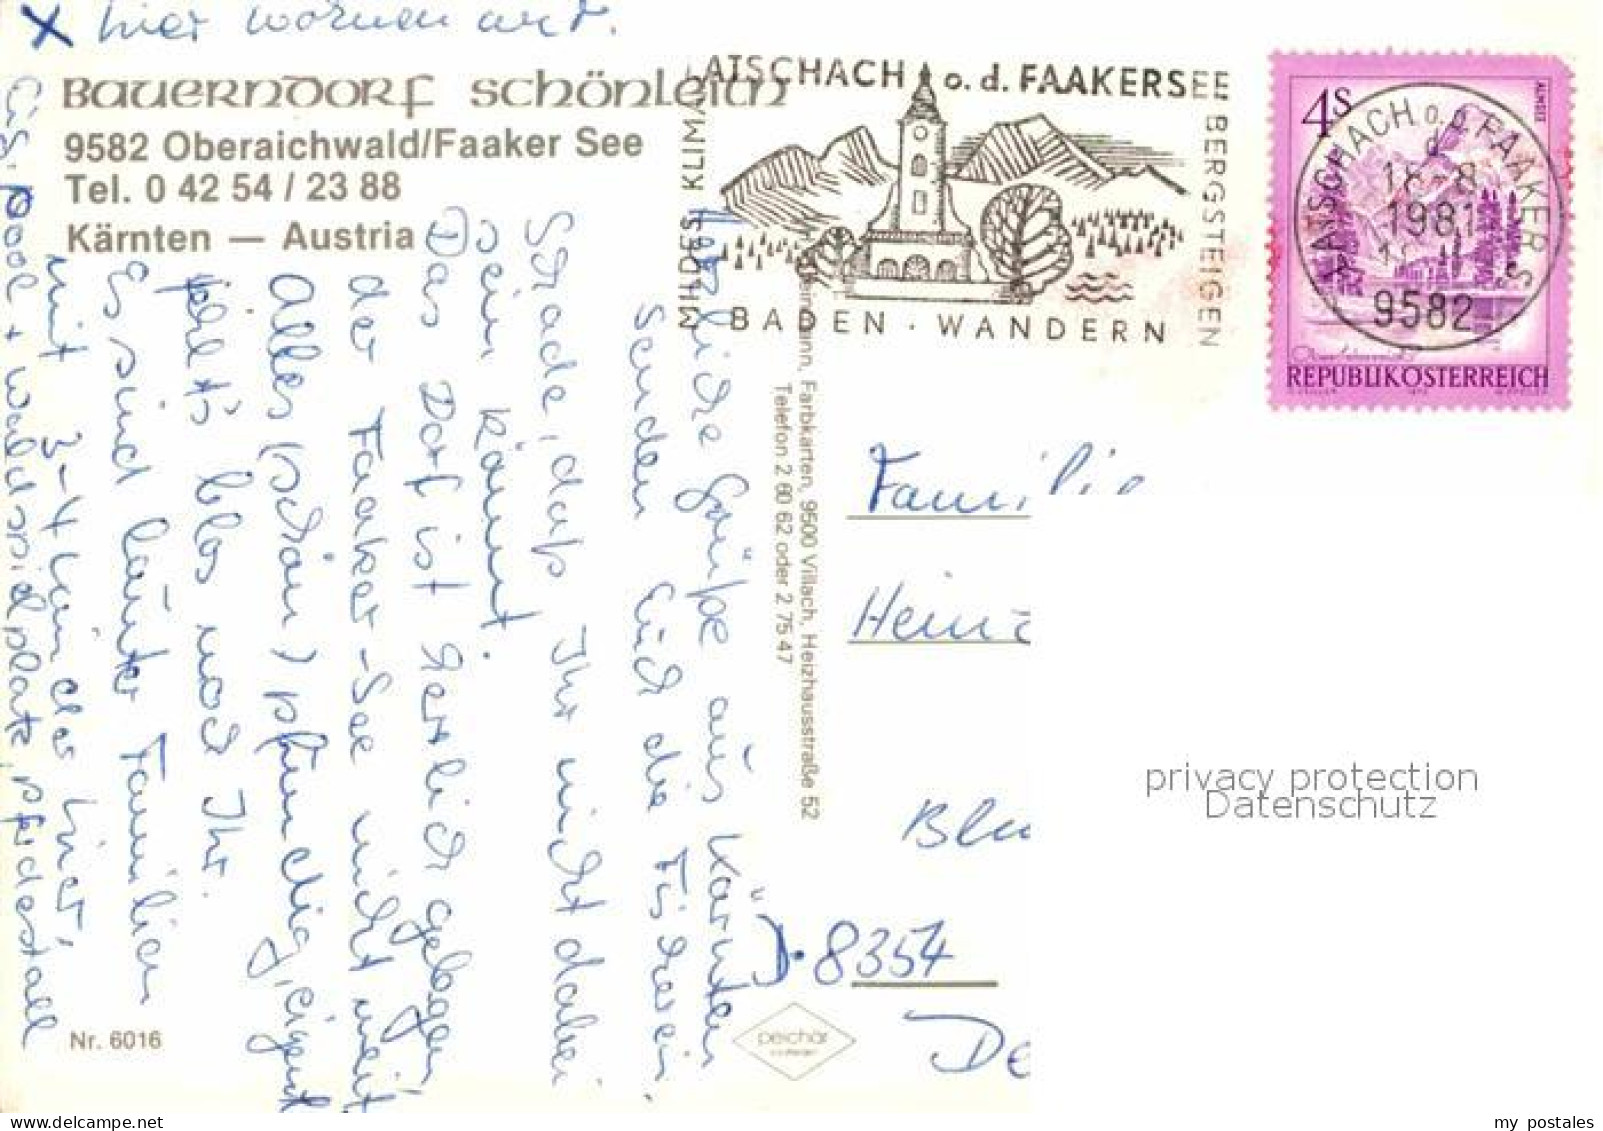 x hier wohnen wir.
Bauerndorf Schönleitn
9582 Oberaichwald/Faaker See
Tel. 0 42 54 / 23 88
Kärnten — Austria
LATSCHACH o. d. FAAKERSEE
MILDES KLIMA
BERGSTEIGEN
BADEN · WANDERN
4S
ALMSEE
REPUBLIK ÖSTERREICH
LATSCHACH o. d. FAAKER S
18-8
1981
9582
Herzliche Grüße aus Kärnten
senden Euch die
Schade, daß Ihr nicht dabei
sein könnt.
Das Dorf ist herrlich gelegen,
der Faaker-See nicht weit
Alles (schön) pfundig, eigent
fehlt's blos noch Ihr.
Es sind lauter Familien
mit 3-4 Kindern hier,
Pool + Waldspielplatz, Pferdestall
Farbkarten, 9500 Villach, Heizhausstraße 52
Telefon 2 60 62 oder 2 75 47
Familie
Hein
Blu
D-8354
De
Nr. 6016
peichär
privacy protection
Datenschutz
my postales
www.delcampe.net